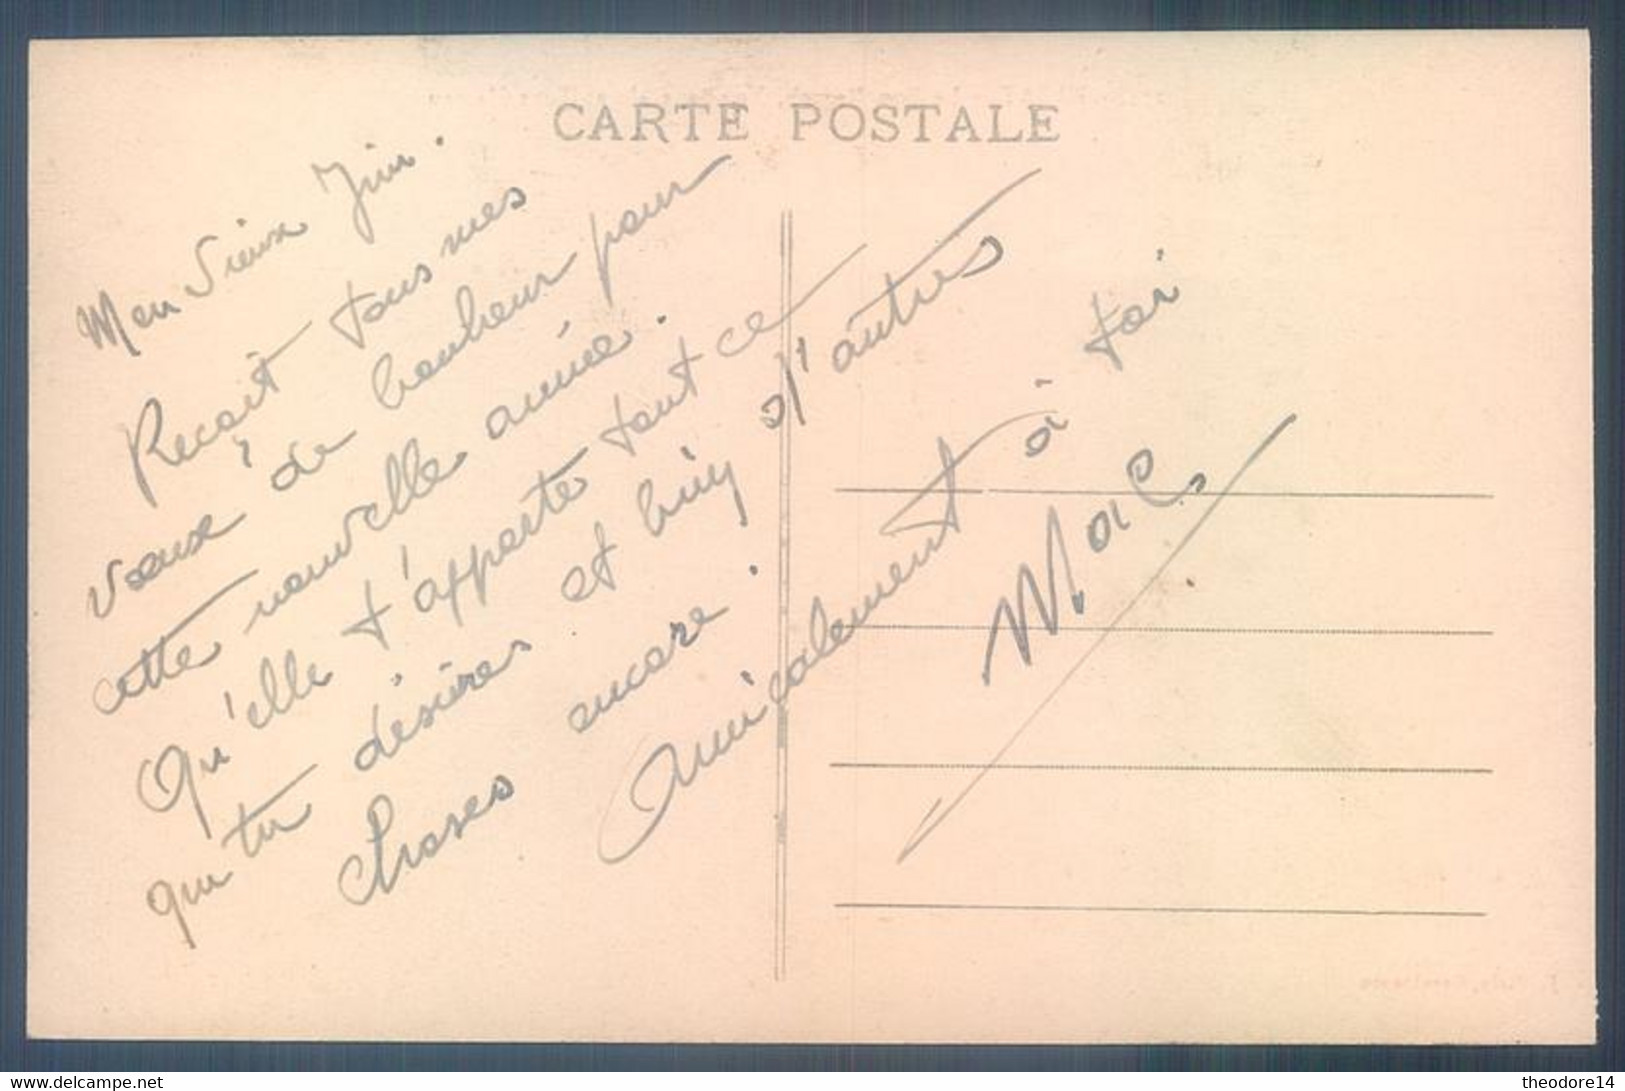 CARTE POSTALE
Mon Vieux Jim.
Reçoit tous mes
vœux de bonheur pour
cette nouvelle année.
Qu'elle t'apporte tout ce
que tu désires et bien d'autres
choses encore.
Amicalement à toi
Mac
www.delcampe.net
theodore14